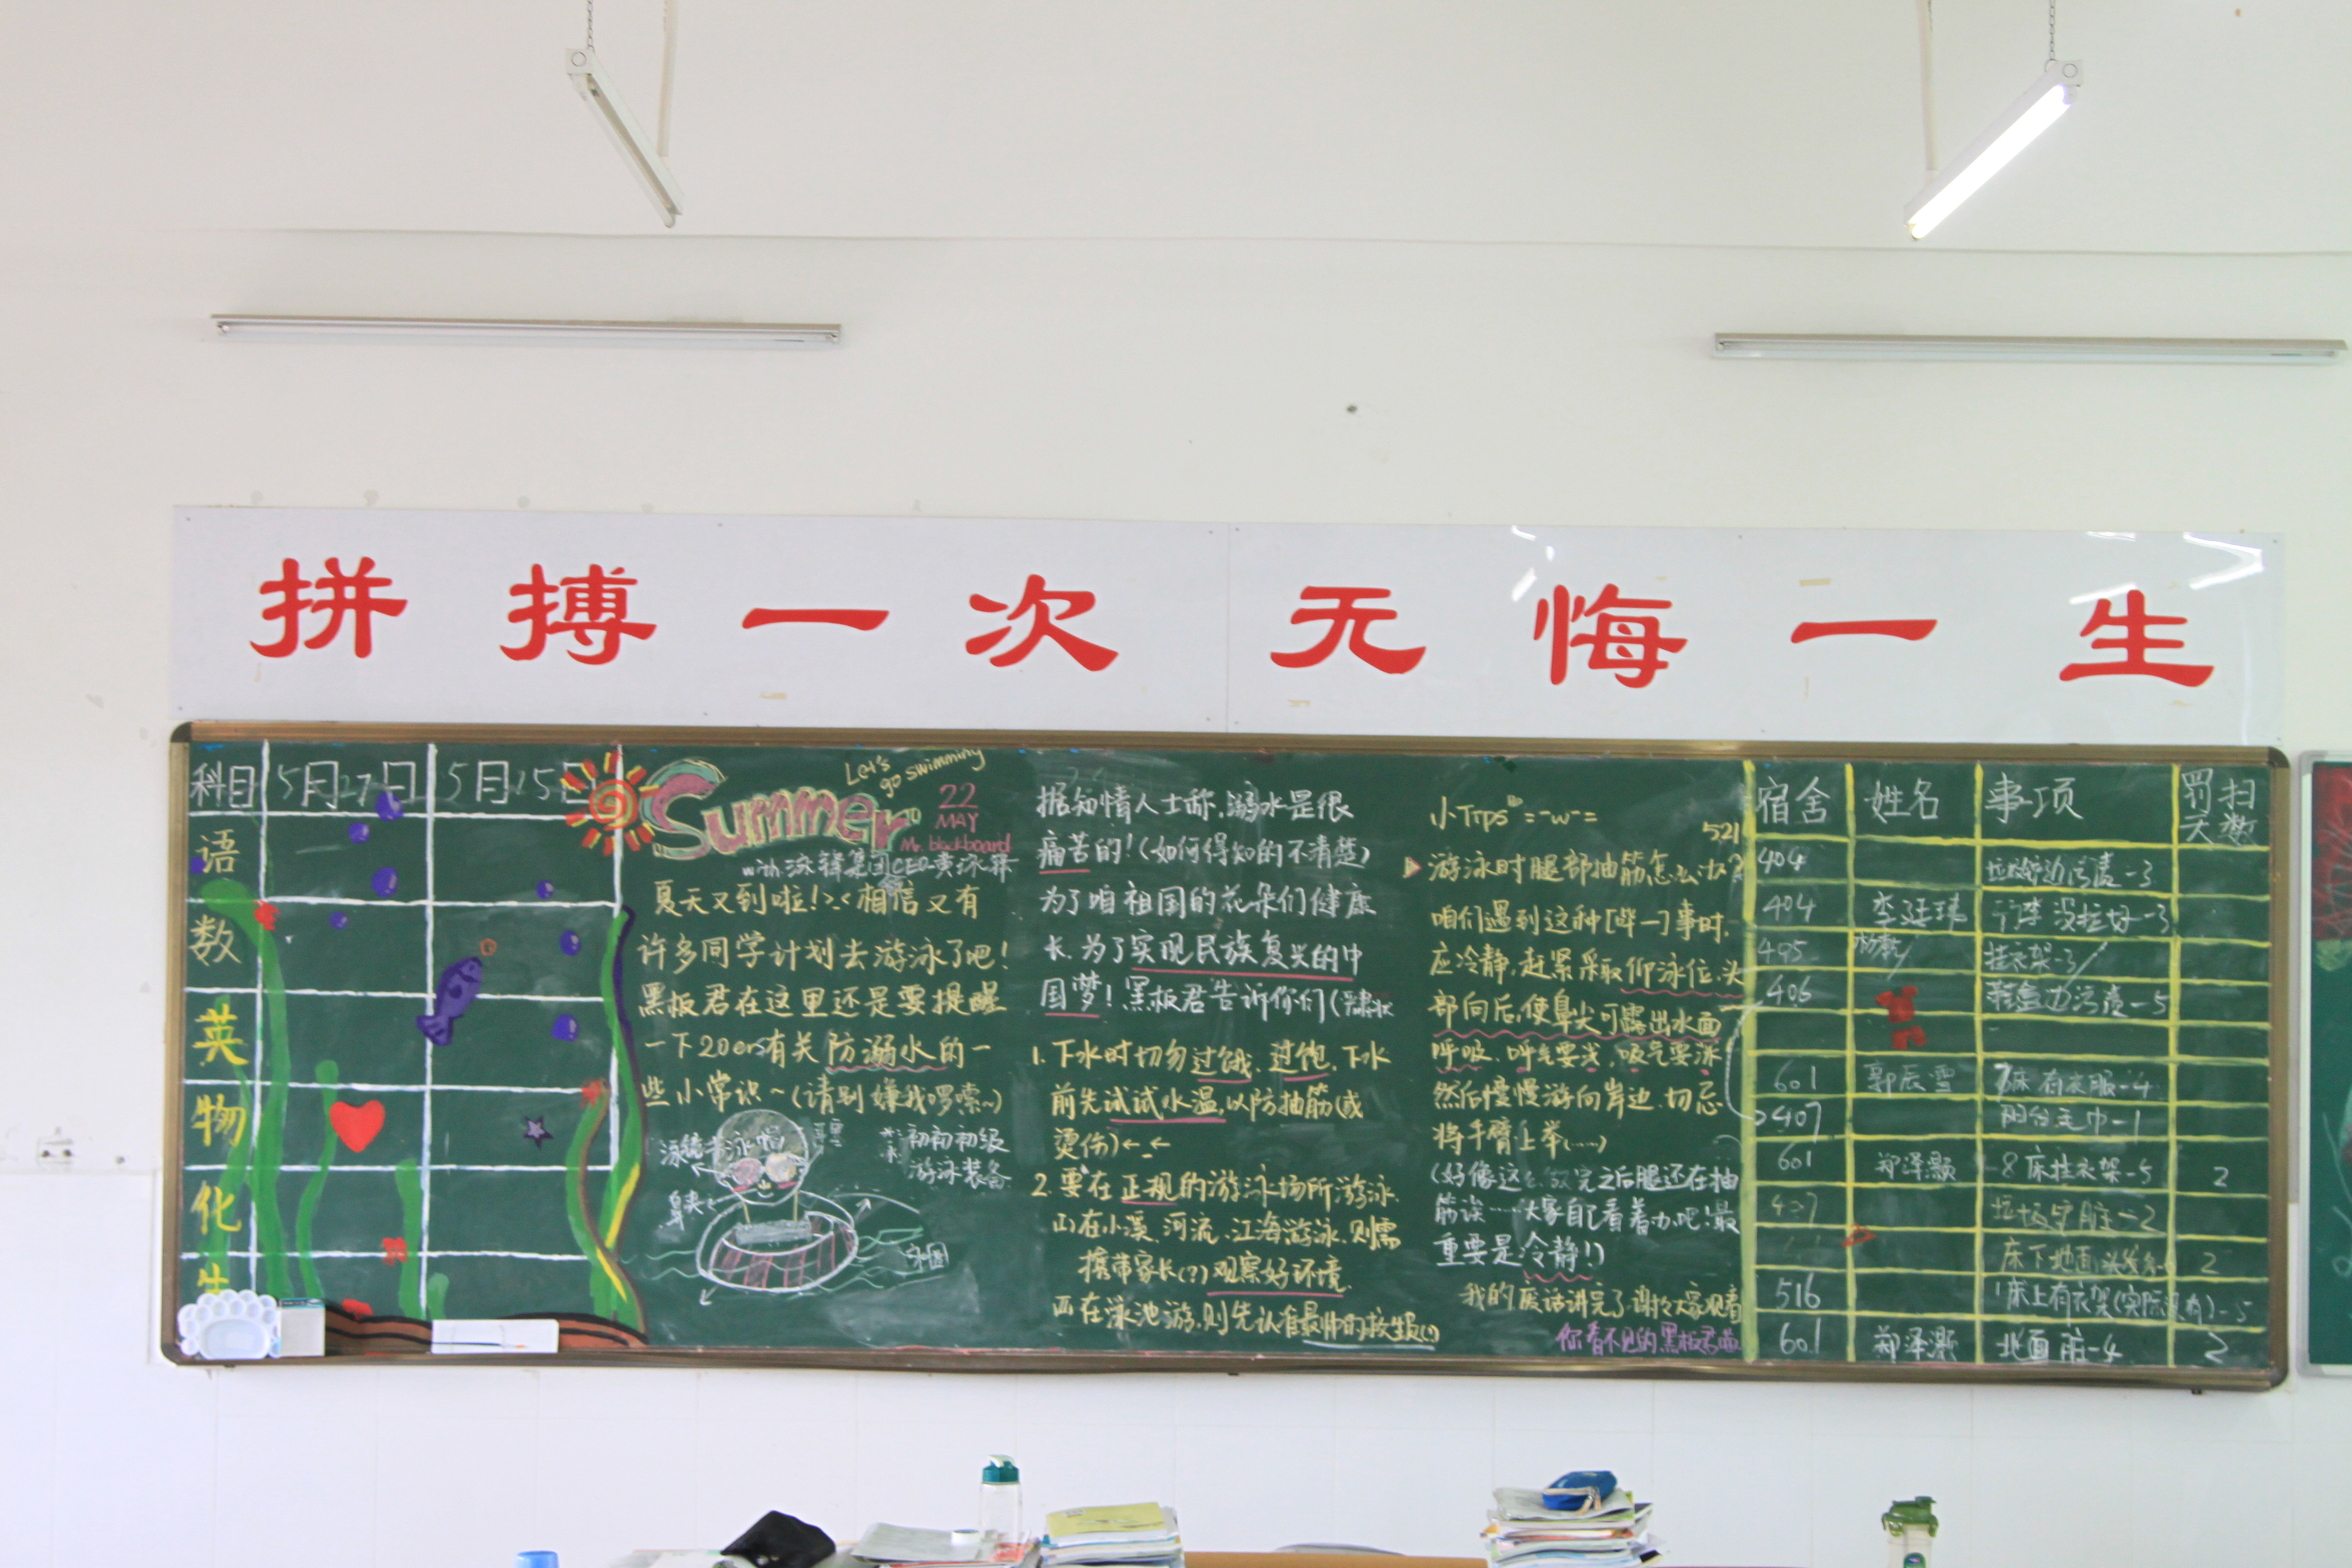 拼搏一次 无悔一生
科目 5月27日 5月15日
语
数
英
物
化
生
Let's go swimming
Summer
22
MAY
Mr. blackboard
夏天又到啦！>.<相信又有
许多同学计划去游泳了吧！
黑板君在这里还是要提醒
一下20ers有关防溺水的一
些小常识~(请别嫌我啰嗦~)
泳镜 泳帽
鼻夹
初初初级
游泳装备
据知情人士称,溺水是很
痛苦的！(如何得知的不清楚)
为了咱祖国的花朵们健康
长.为了实现民族复兴的中
国梦！黑板君告诉你们(
1.下水时切勿过饿.过饱.下水
前先试试水温,以防抽筋(或
烫伤)←_←
2.要在正规的游泳场所游泳.
(1)在小溪.河流.江海游泳.则需
携带家长(?)观察好环境.
在泳池游,则先认准最帅的救生员(!)
小Tips =-w-=
521
游泳时腿部抽筋怎么办?
咱们遇到这种[哔—]事时.
应冷静.赶紧采取仰泳位.头
部向后,使鼻尖可露出水面
呼吸.呼气要浅.吸气要深
然后慢慢游向岸边.切忌
将手臂上举(……)
(好像这么做完之后腿还在抽
筋诶……大家自己看着办吧!最
重要是冷静!)
我的废话讲完了.谢谢大家观看
你看不见的黑板君啦
宿舍 姓名 事项 罚扫天数
404 -3
404 李廷玮 行李没拉好-3
495 挂衣架-3
406 鞋盒边污渍-5
601 郭辰雪 有衣服-4
407 阳台毛巾-1
601 郑泽灏 8床挂衣架-5 2
407 -2
床下地面 2
516 1床上有衣架(实际没有)-5
601 郑泽灏 北面脏-4 2